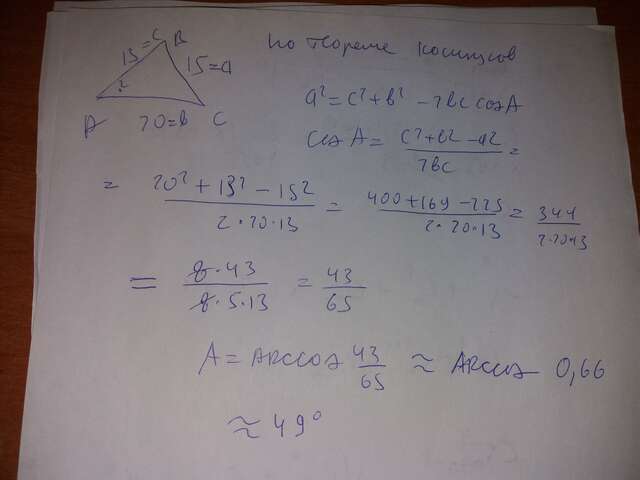 По теореме косинусов
13=c B
15=a
A 20=b C
a²=c²+b² -2bc cosA
cos A = c²+b²-a² / 2bc =
= 20²+13²-15² / 2·20·13 = 400+169-225 / 2·20·13 = 344 / 2·20·13
= 8·43 / 8·5·13 = 43 / 65
A = ARccos 43/65 ≈ ARccos 0,66
≈ 49°